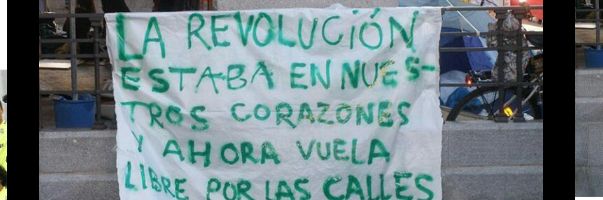 LA REVOLUCIÓN
ESTABA EN NUES-
TROS CORAZONES
Y AHORA VUELA
LIBRE POR LAS CALLES